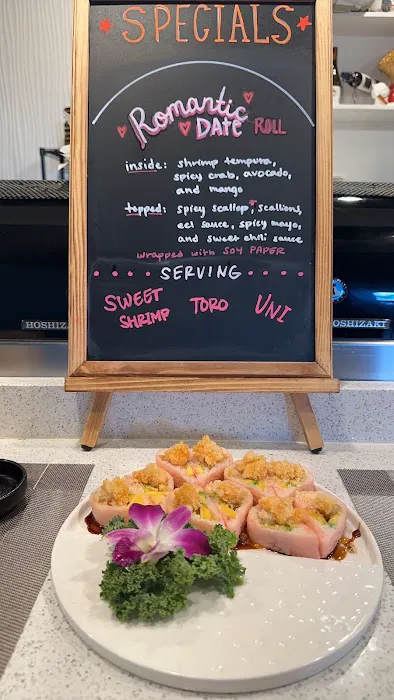 SPECIALS
Romantic
DATE ROLL
inside: shrimp tempura,
spicy crab, avocado,
and mango
topped: spicy scallop, scallions,
eel sauce, spicy mayo,
and sweet chili sauce
wrapped with SOY PAPER
SERVING
SWEET
SHRIMP
TORO
UNI
HOSHIZ
OSHIZAKI